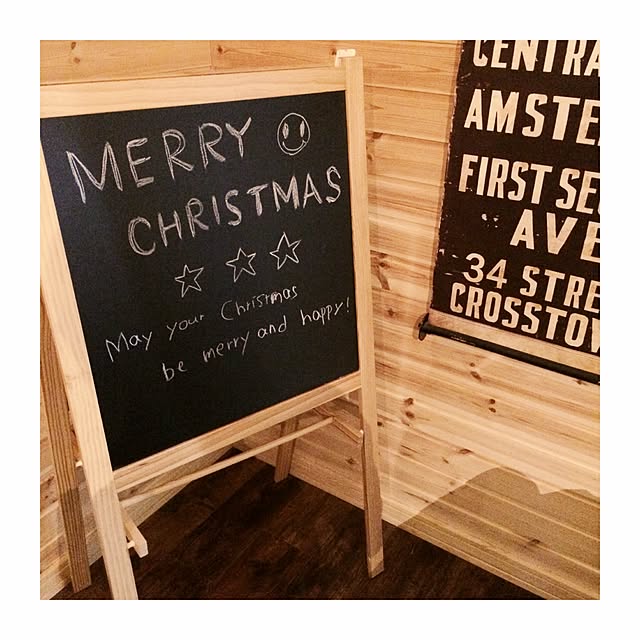 MERRY
CHRISTMAS
May your Christmas
be merry and happy!
CENTRA
AMSTE
FIRST SE
AVE
34 STRE
CROSSTOW